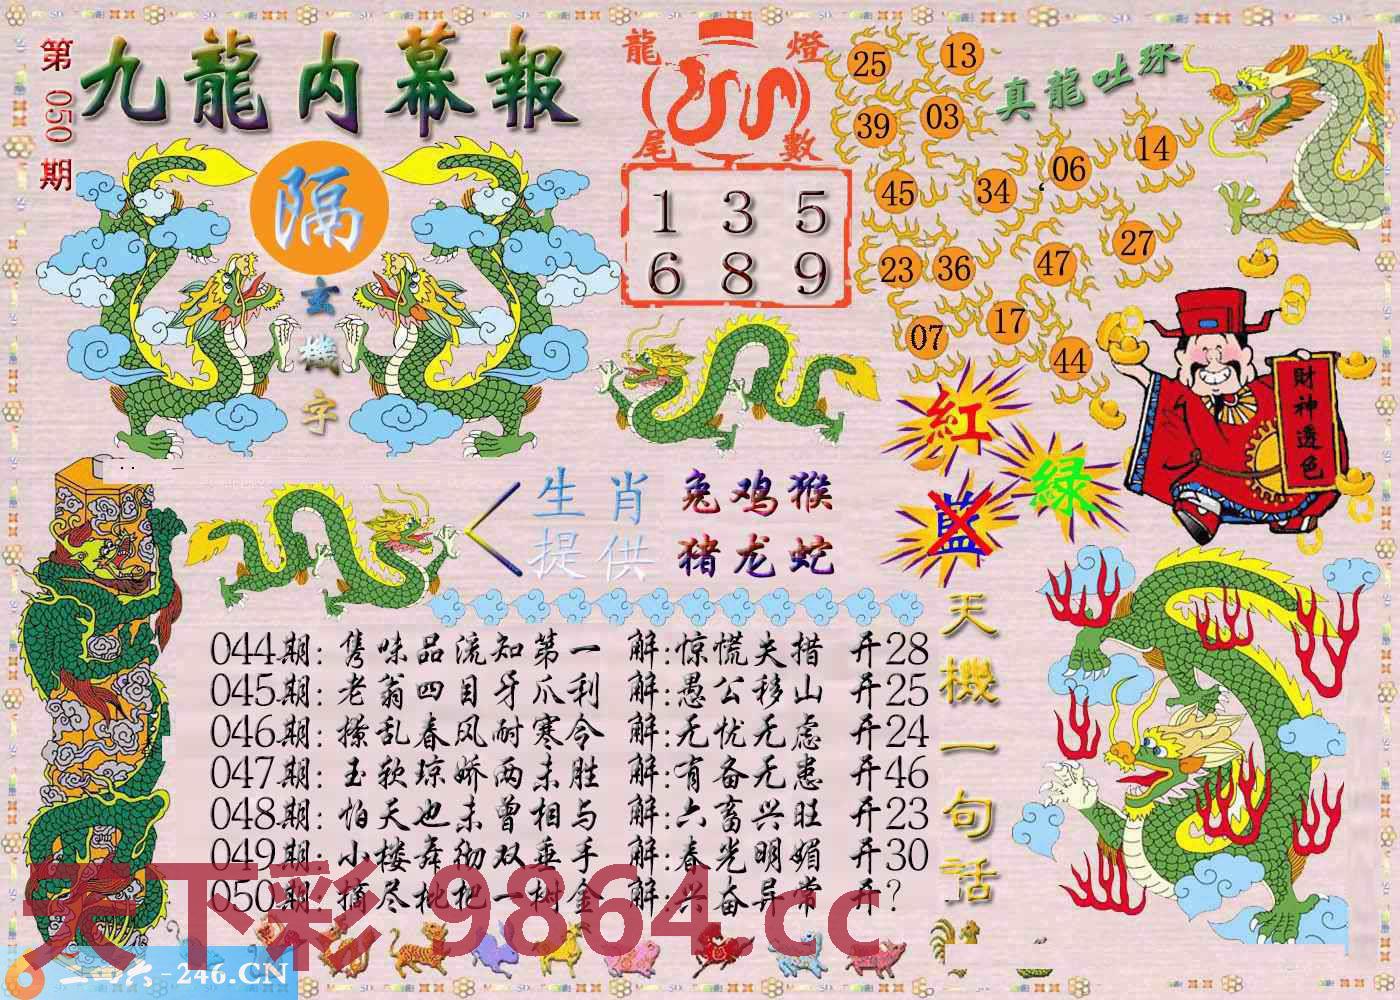 第050期
九龍内幕報
隔
玄機字
龍燈尾數
1 3 5
6 8 9
真龍吐珠
25 13
39 03
45 34 06 14
23 36 47 27
07 17 44
財神透色
紅
绿
蓝
生肖 兔鸡猴
提供 猪龙蛇
044期: 隽味品流知第一 解:惊慌失措 开28
045期: 老翁四目牙爪利 解:愚公移山 开25
046期: 撩乱春风耐寒令 解:无忧无虑 开24
047期: 玉软琼娇两未胜 解:有备无患 开46
048期: 怕天也未曾相与 解:六畜兴旺 开23
049期: 小楼舞彻双垂手 解:春光明媚 开30
050期: 摘尽枇杷一树金 解:兴奋异常 开?
天機一句話
天下彩 9864.cc
二四六-246.CN